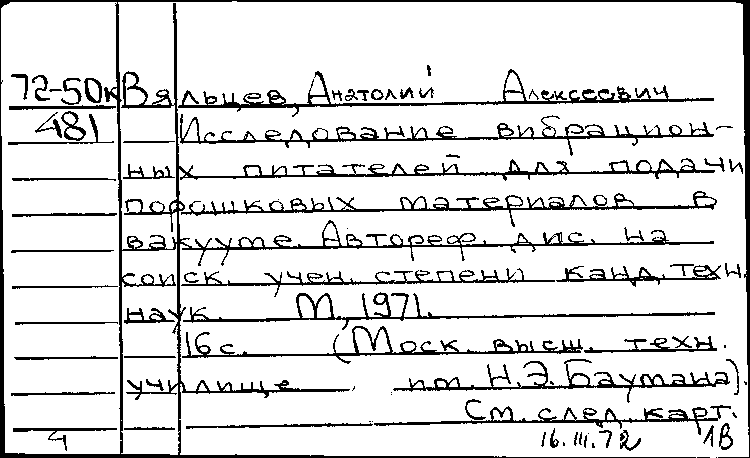 72-50к Вяльцев, Анатолий Алексеевич
481 Исследование вибрацион-
ных питателей для подачи
порошковых материалов в
вакууме. Автореф. дис. на
соиск. учен. степени канд. техн.
наук. М., 1971.
16 с. (Моск. высш. техн.
училище им. Н.Э. Баумана).
См. след. карт.
4 16.III.72 1В